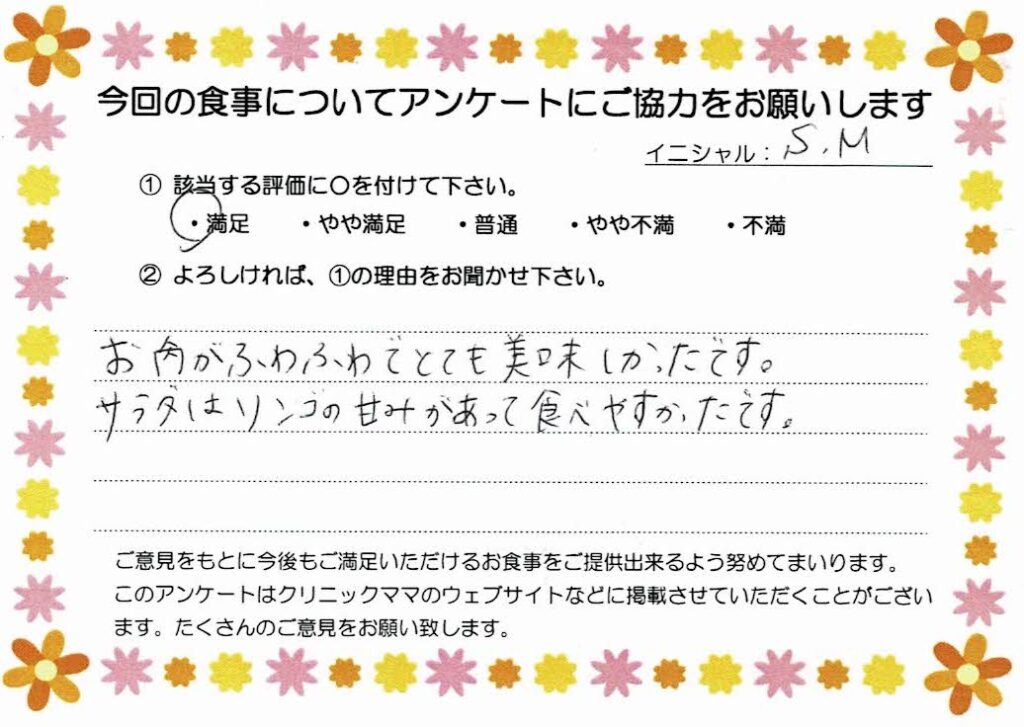 今回の食事についてアンケートにご協力をお願いします
イニシャル：S.M
① 該当する評価に〇を付けて下さい。
・満足 ・やや満足 ・普通 ・やや不満 ・不満
② よろしければ、①の理由をお聞かせ下さい。
お肉がふわふわでとても美味しかったです。
サラダはリンゴの甘みがあって食べやすかったです。
ご意見をもとに今後もご満足いただけるお食事をご提供出来るよう努めてまいります。
このアンケートはクリニックママのウェブサイトなどに掲載させていただくことがござい
ます。たくさんのご意見をお願い致します。